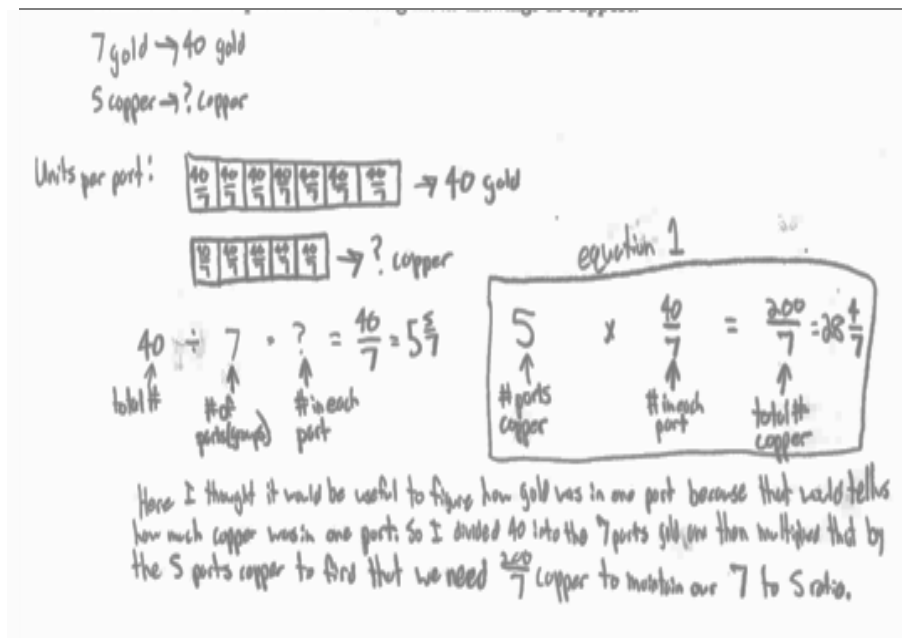 7 gold → 40 gold
5 copper → ? copper
Units per part:
40/7 40/7 40/7 40/7 40/7 40/7 40/7 → 40 gold
40/7 40/7 40/7 40/7 40/7 → ? copper
40 ÷ 7 = ? = 40/7 = 5 5/7
total #
# of parts (groups)
# in each part
equation 1
5 × 40/7 = 200/7 = 28 4/7
# parts copper
# in each part
total # copper
Here I thought it would be useful to figure how gold was in one part because that would tell us
how much copper was in one part. So I divided 40 into the 7 parts gold and then multiplied that by
the 5 parts copper to find that we need 200/7 copper to maintain our 7 to 5 ratio.